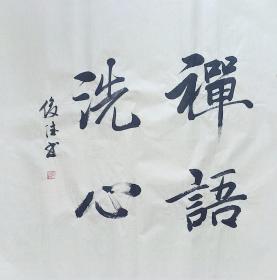 禪語
洗心
俊德書